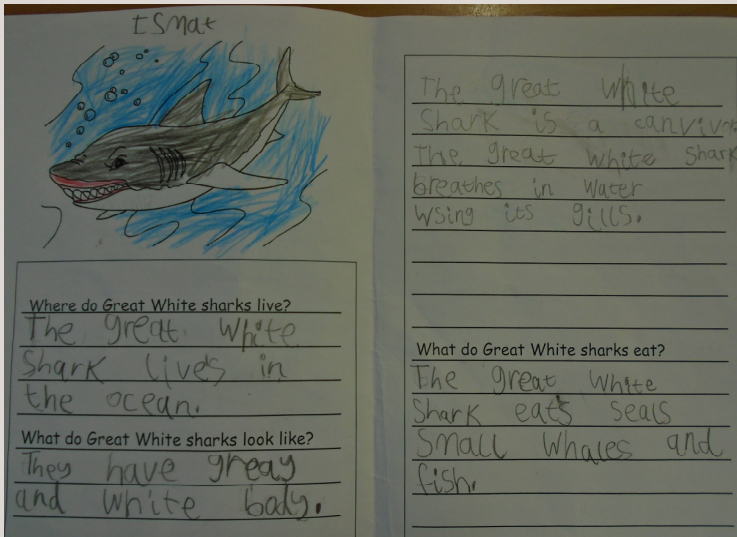 ISMat
Where do Great White sharks live?
The great White
Shark lives in
the ocean.
What do Great White sharks look like?
They have greay
and white baly.
The great white
Shark is a canvivor
The great white Shark
breathes in water
wsing its gills.
What do Great White sharks eat?
The great White
Shark eats seals
Small Whales and
fish.